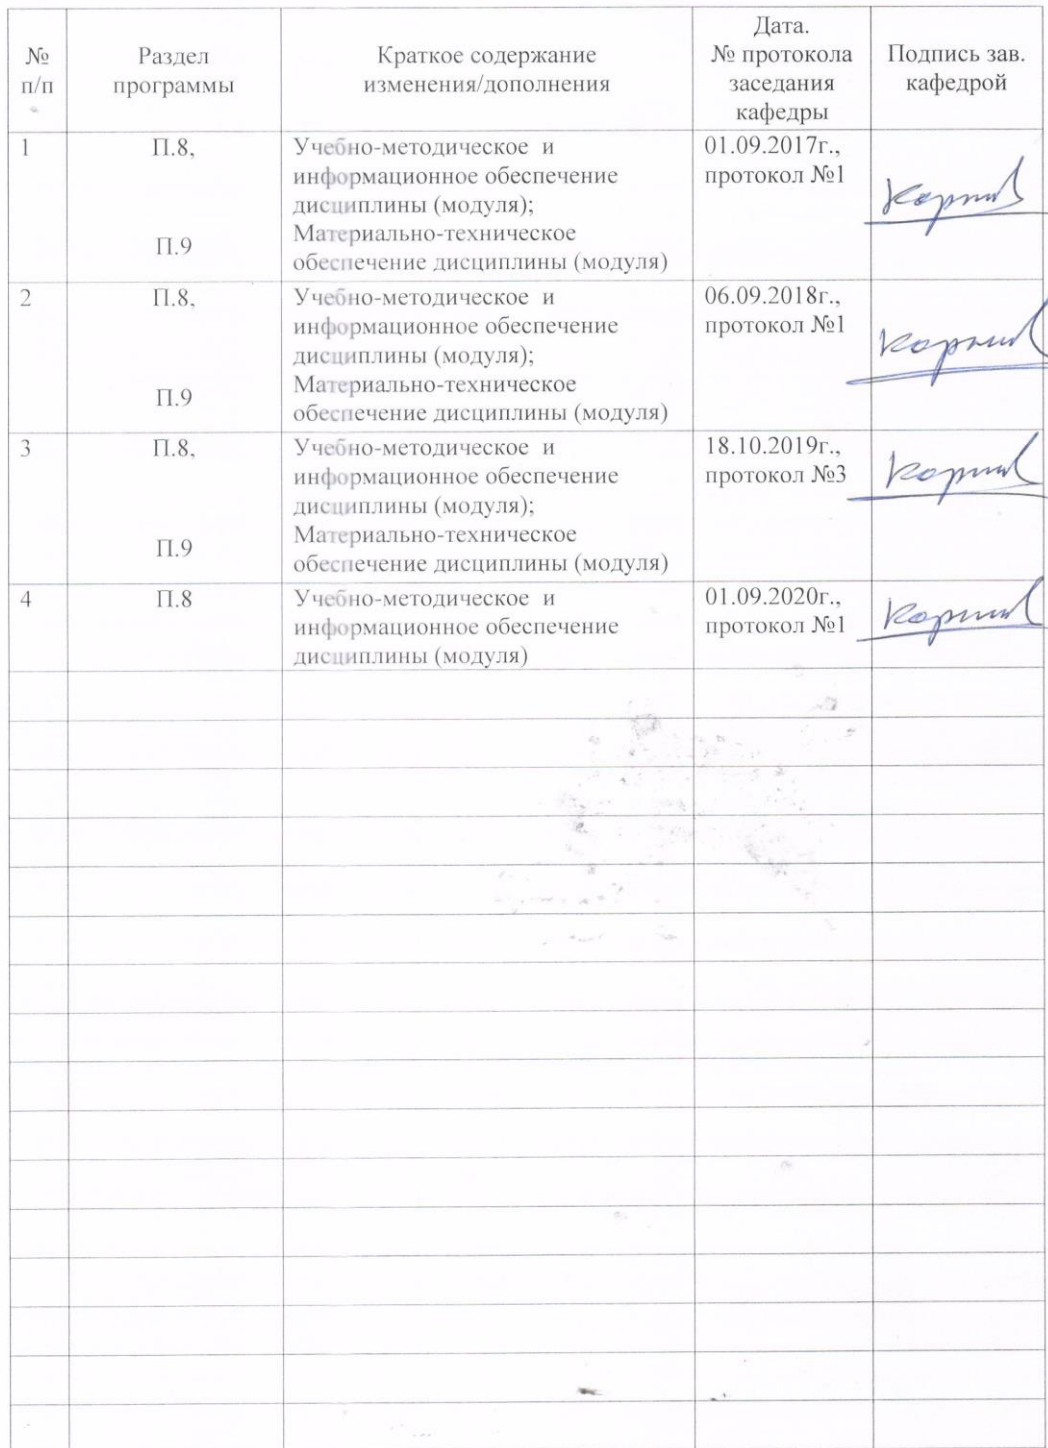 № п/п
Раздел программы
Краткое содержание изменения/дополнения
Дата. № протокола заседания кафедры
Подпись зав. кафедрой
1
П.8,
П.9
Учебно-методическое и
информационное обеспечение
дисциплины (модуля);
Материально-техническое
обеспечение дисциплины (модуля)
01.09.2017г.,
протокол №1
2
П.8,
П.9
Учебно-методическое и
информационное обеспечение
дисциплины (модуля);
Материально-техническое
обеспечение дисциплины (модуля)
06.09.2018г.,
протокол №1
3
П.8,
П.9
Учебно-методическое и
информационное обеспечение
дисциплины (модуля);
Материально-техническое
обеспечение дисциплины (модуля)
18.10.2019г.,
протокол №3
4
П.8
Учебно-методическое и
информационное обеспечение
дисциплины (модуля)
01.09.2020г.,
протокол №1